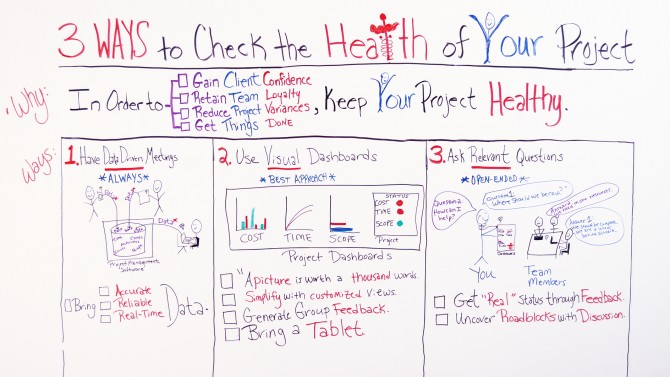 3 WAYS to Check the Health of Your Project
Why:
In Order to
Gain Client Confidence
Retain Team Loyalty
Reduce Project Variances
Get Things Done
, Keep Your Project Healthy.
Ways:
1. Have Data Driven Meetings
*ALWAYS*
Data
Project Management
Software
Bring
Accurate
Reliable
Real-Time
Data.
2. Use Visual Dashboards
*BEST APPROACH*
COST
TIME
SCOPE
STATUS
COST
TIME
SCOPE
Project
Project Dashboards
"A picture is worth a thousand words.
Simplify with customized views.
Generate Group Feedback.
Bring a Tablet.
3. Ask Relevant Questions
*OPEN-ENDED*
Question 2
How can I
help?
Question 1
Where should we be now?"
Answer 1
You
Team
Members
Get "Real" Status through Feedback.
Uncover Roadblocks with Discussion.